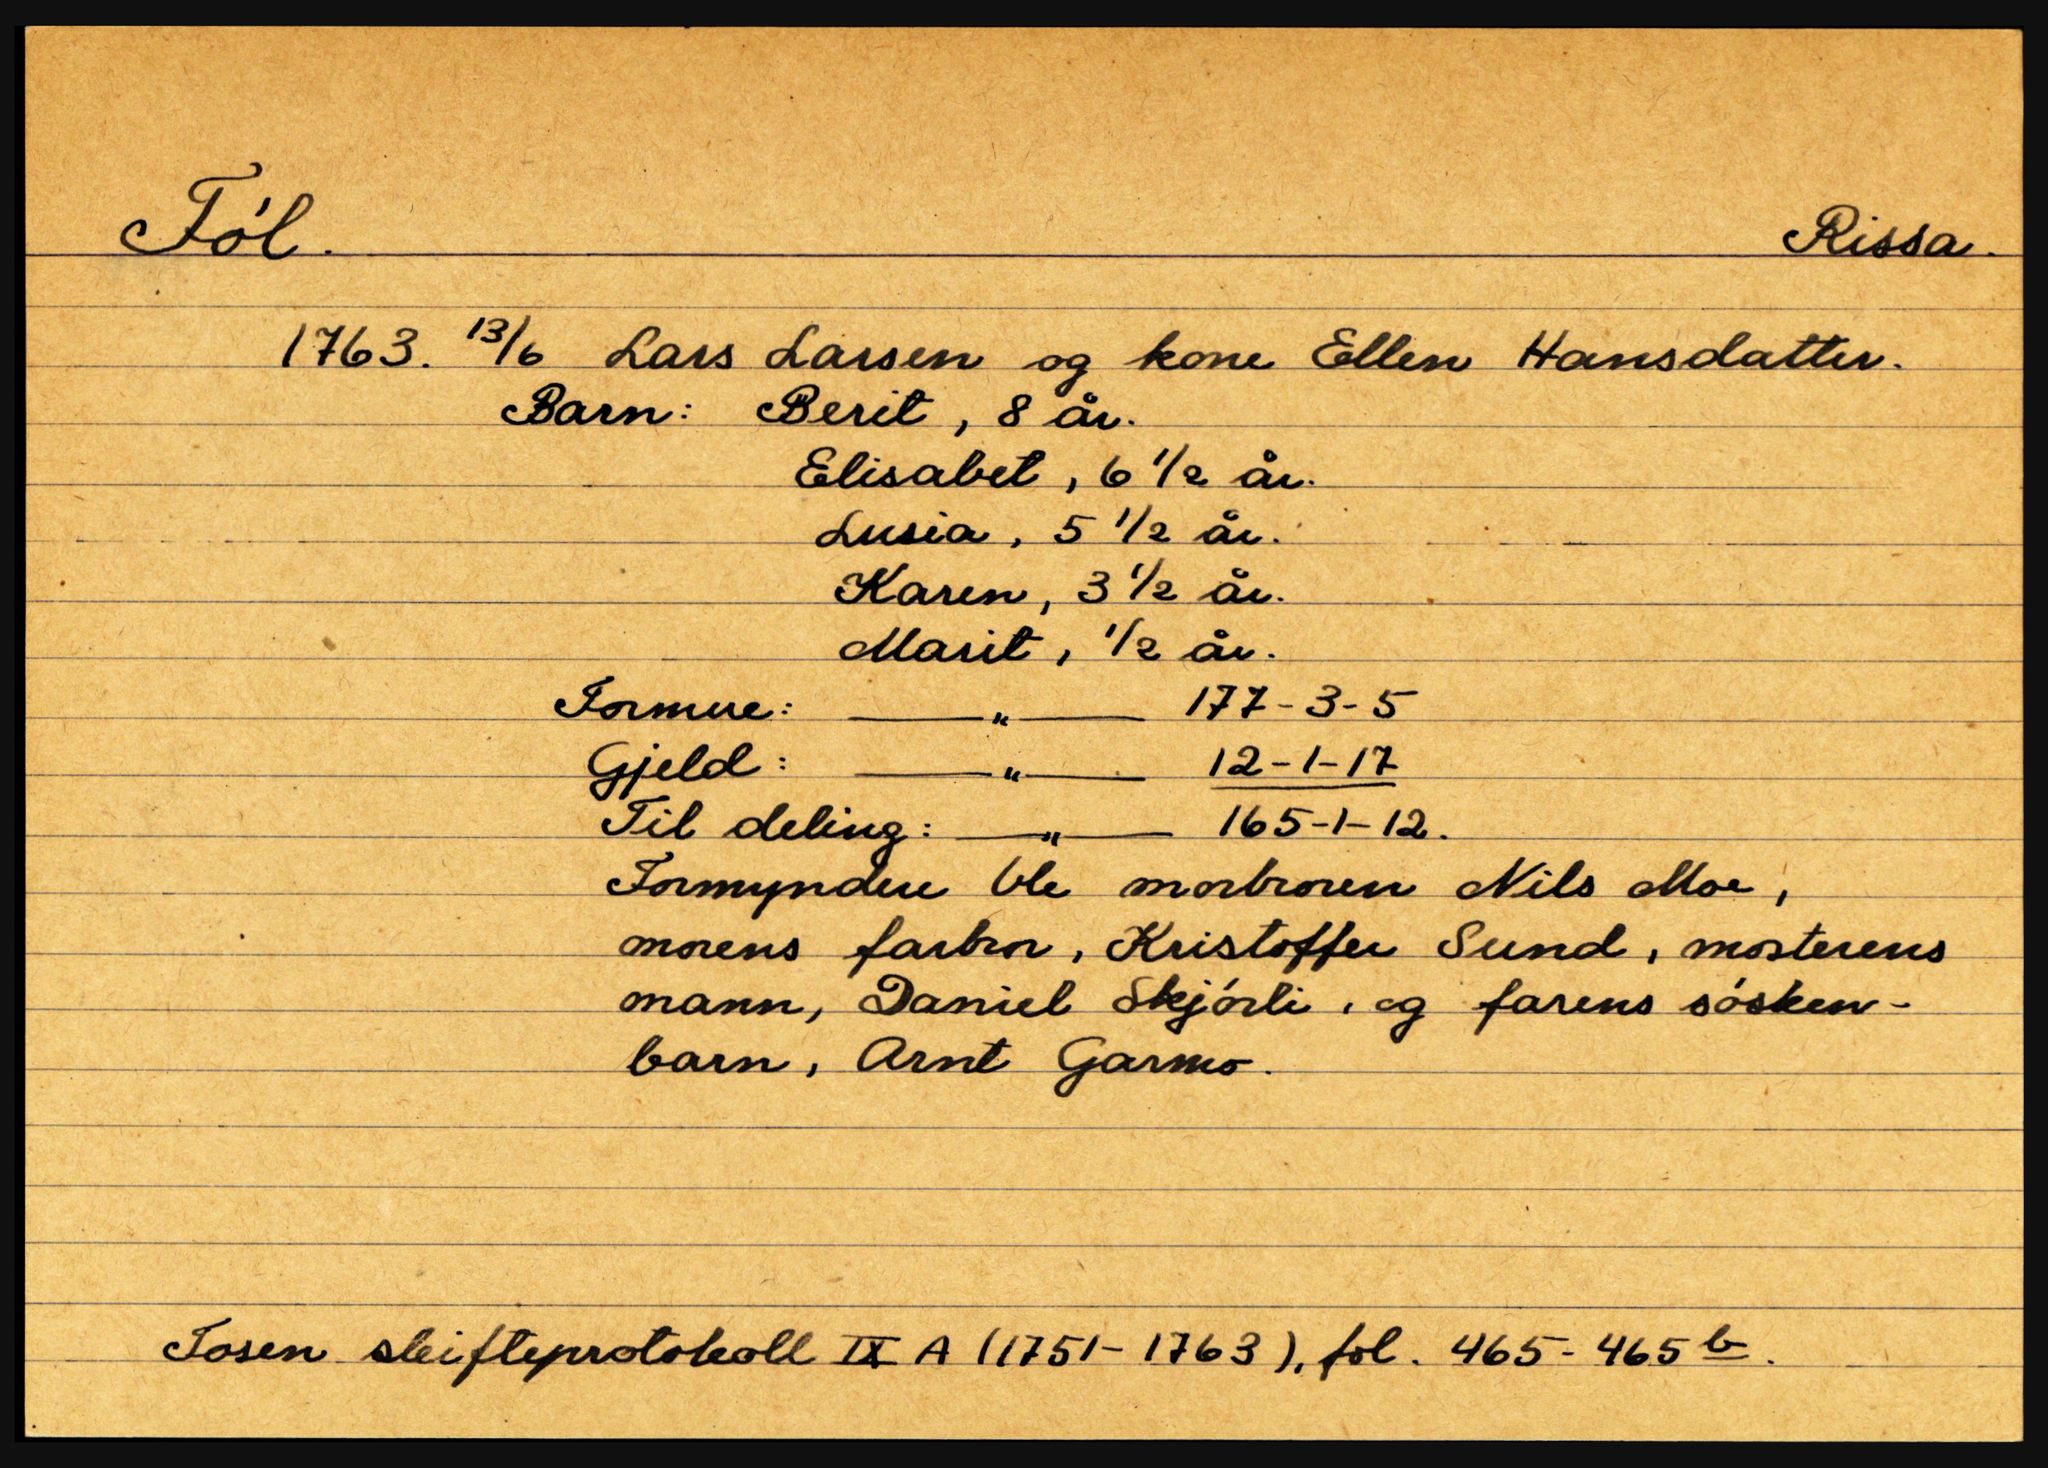 Fól. Rissa.
1763. 13/6 Lars Larsen og kone Ellen Hansdatter.
Barn: Berit, 8 år.
Elisabet, 6 1/2 år.
Lusia, 5 1/2 år.
Karen, 3 1/2 år.
Marit, 1/2 år.
Formue: —„— 177-3-5
Gjeld: —„— 12-1-17
Til deling: —„— 165-1-12.
Formyndere ble morbroren Nils Moe,
morens farbror, Kristoffer Sund, mosterens
mann, Daniel Skjórli, og farens sósken-
barn, Arnt Garmo.
Fosen skifteprotokoll IX A (1751-1763), fol. 465-465 b.